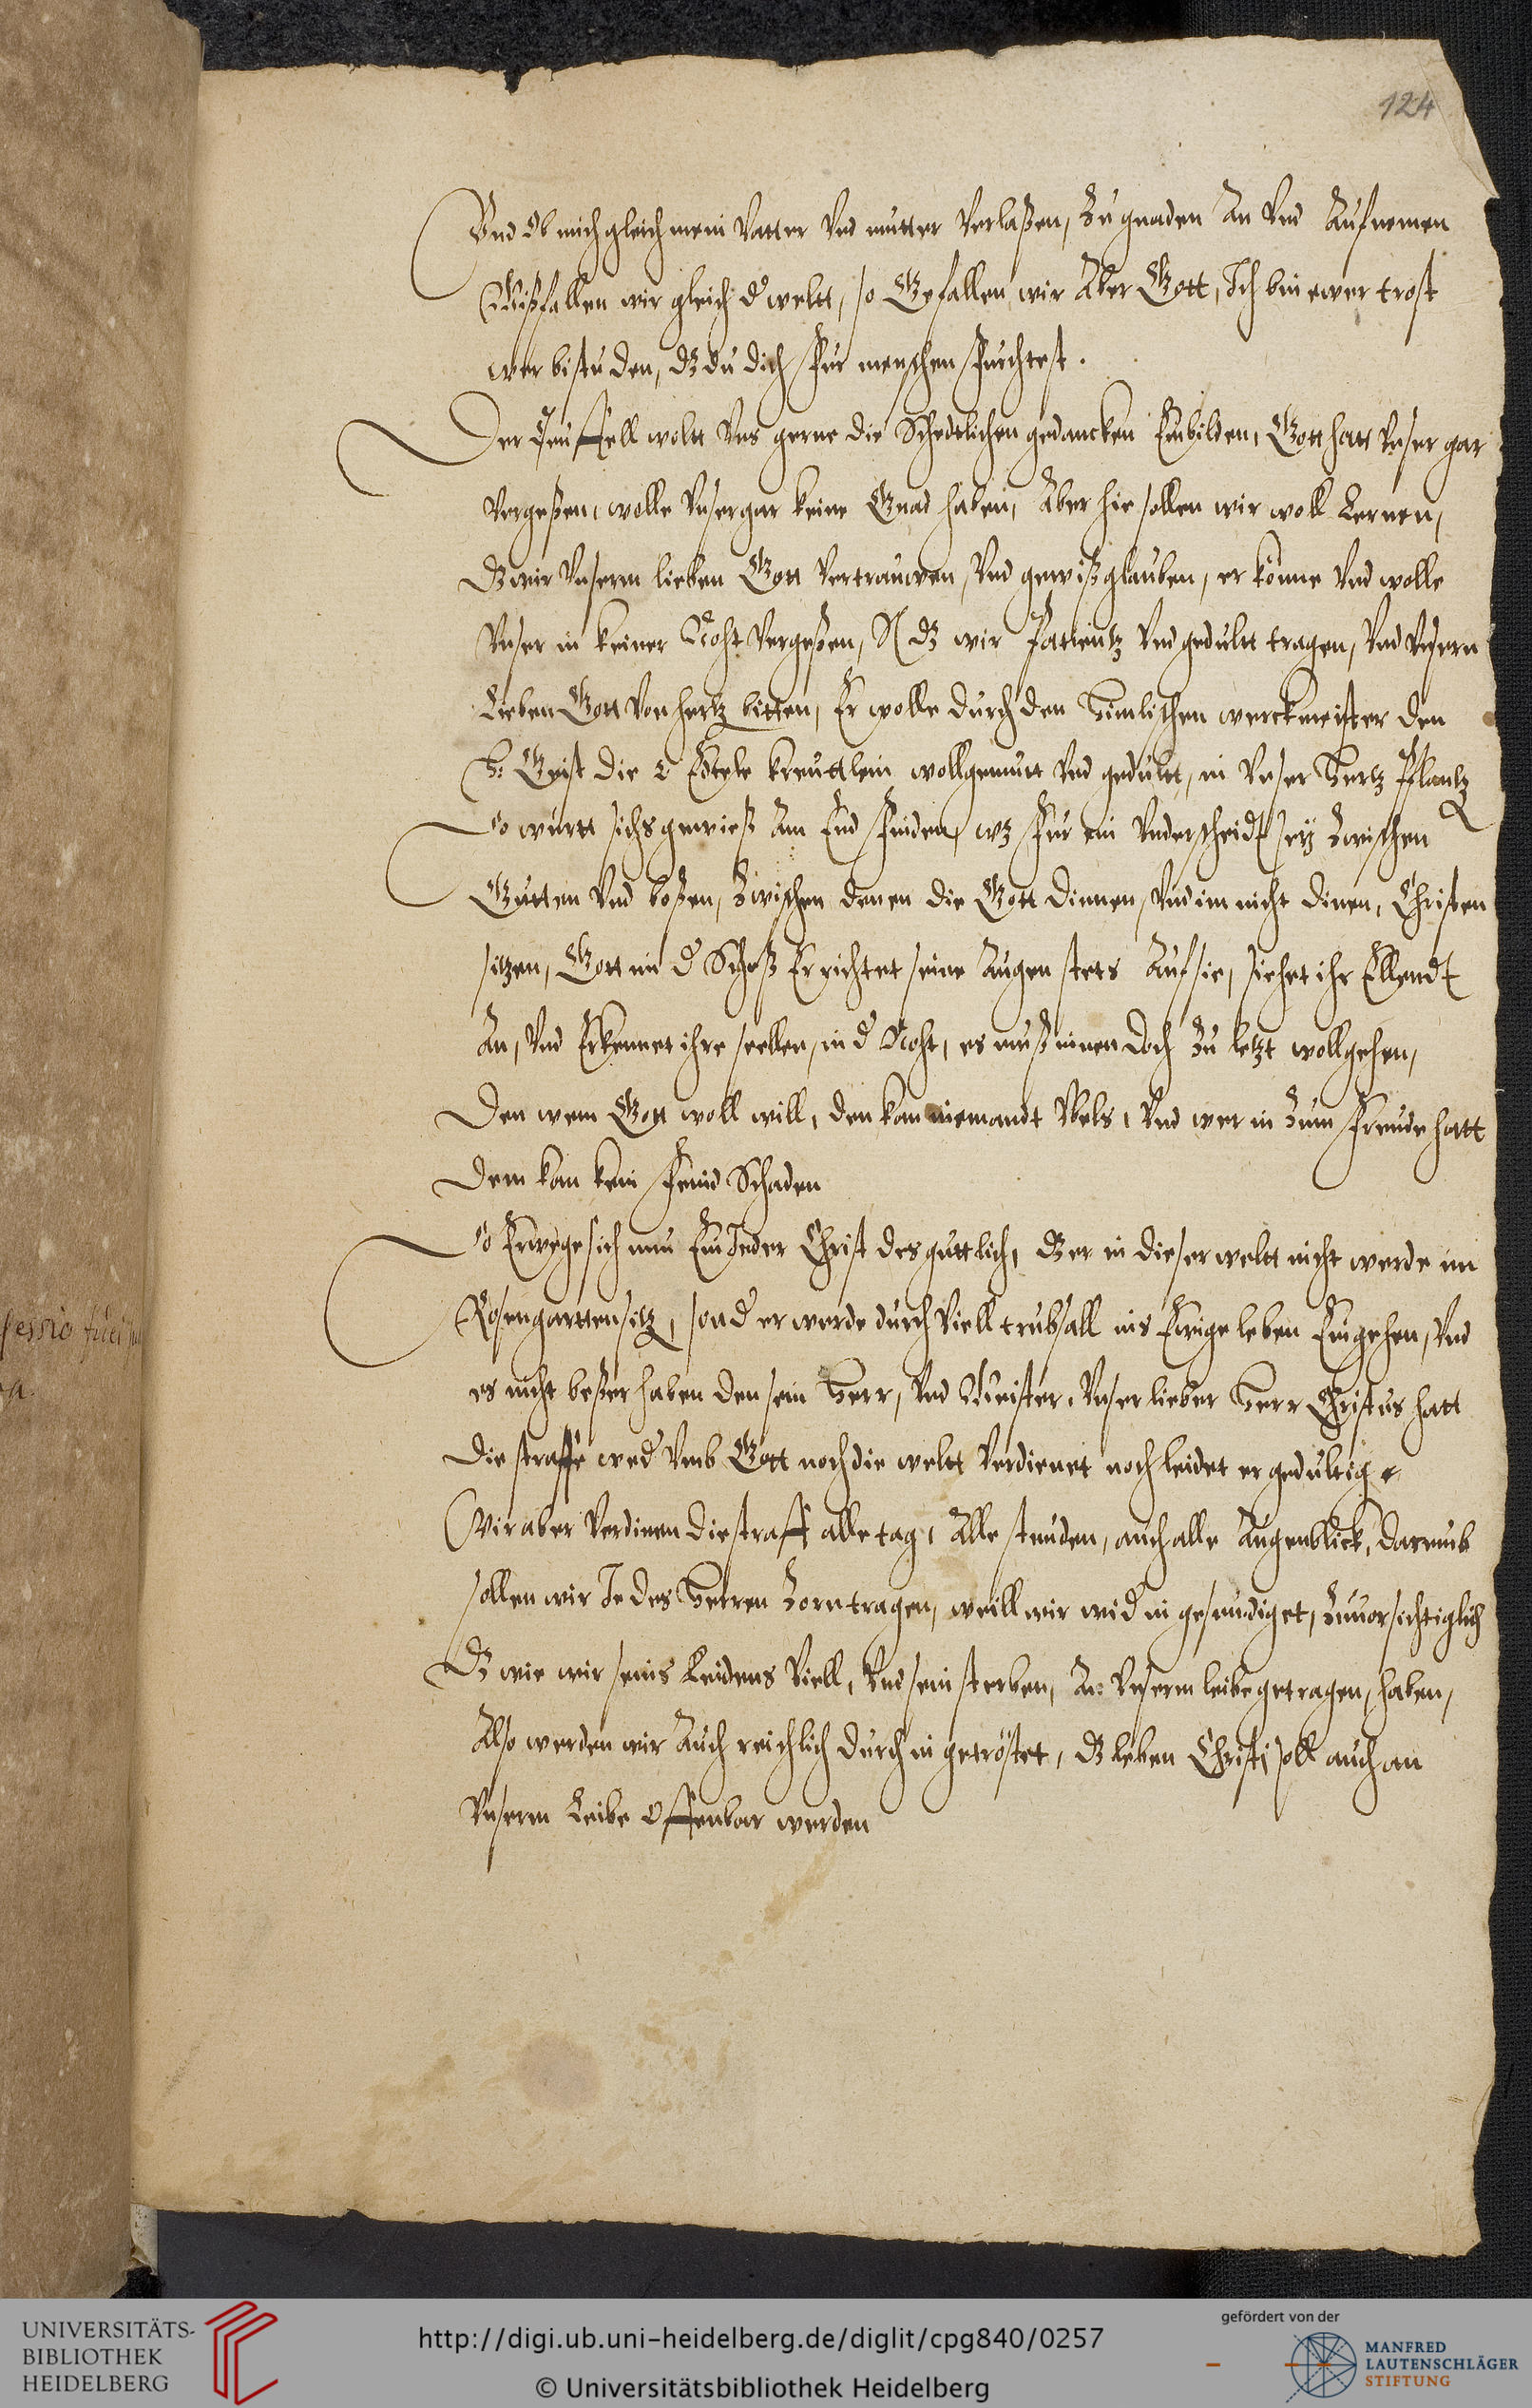 124
Vnd Ob mich gleich mein Vatter Vnd mutter Verlaßen, Zu gnaden An Vnd Aufnemen
Mißfallen wir gleich d' weltt, so Gefallen wir Aber Gott, Ich bin ewer trost
wer bistu den, dz du dich Fur menschen Furchtest.
Der Teuffell woltt Vns gerne die Schedtlichen gedancken Einbilden, Gott hatt Vnser gar
Vergeßen, wolle Vnser gar keine Gnad haben, Aber hie sollen wir woll Lernen,
Dz wir Vnserm lieben Gott Vertrauwen, Vnd gewiß glauben, er könne Vnd wolle
Vnser in keiner Noht Vergeßen, dz wir Patientz Vnd gedultt tragen, Vnd Vnsern
Lieben Gott Von hertz bitten, Er wolle durch den Himlischen werckmeister den
H: Geist die 2 Edele kreuttlein wollgemutt Vnd gedultt, in Vnser Hertz Pflantz
So wurtt sichs gewieß Am End Finden, wz Fur ein Vnderscheidt seÿ Zwischen
Gutten Vnd boßen, Zwischen denen die Gott dienen, Vnd im nicht dinen, Christen
sitzen, Gott im d' Schoß Er richtet seine Augen stets Auf sie, siehet ihr Ellendt
An, Vnd Erkennet ihre seelen, in d' Noht, es muß innen doch Zu letzt woll gehen,
Den wem Gott woll will, den kan niemandt Vbels, Vnd wer in Zum Freunde hatt
Dem kan kein Feind Schaden
So Erwege sich nun Ein Jeder Christ des guttlich, Dz er in dieser weltt nicht werde im
Rosengartten sitz, sond' er werde durch Viell trubsall ins Ewige leben Eingehen, Vnd
es nicht beßer haben den sein Herr, Vnd Meister, Vnser lieber Herr Christus hatt
Die straffe wed' Vmb Gott noch die weltt Verdienet noch leidet er gedultig
Wir aber Verdinen die straff alle tag, Alle stunden, auch alle Augenblick, darumb
sollen wir Je des Herren Zorn tragen, weill wir wid' in gesundiget, Zuuorsichtiglich
Dz wie wir seins Leidens Viell, Vnd sein sterben, An Vnserm leibe getragen, haben,
Also werden wir Auch reichlich durch in getröstet, Dz leben Christi soll auch an
Vnserm Leibe Offenbar werden
UNIVERSITÄTS-
BIBLIOTHEK
HEIDELBERG
http://digi.ub.uni-heidelberg.de/diglit/cpg840/0257
© Universitätsbibliothek Heidelberg
gefördert von der
MANFRED
LAUTENSCHLÄGER
STIFTUNG